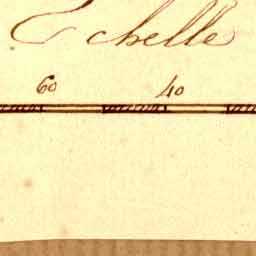 Echelle
60 40